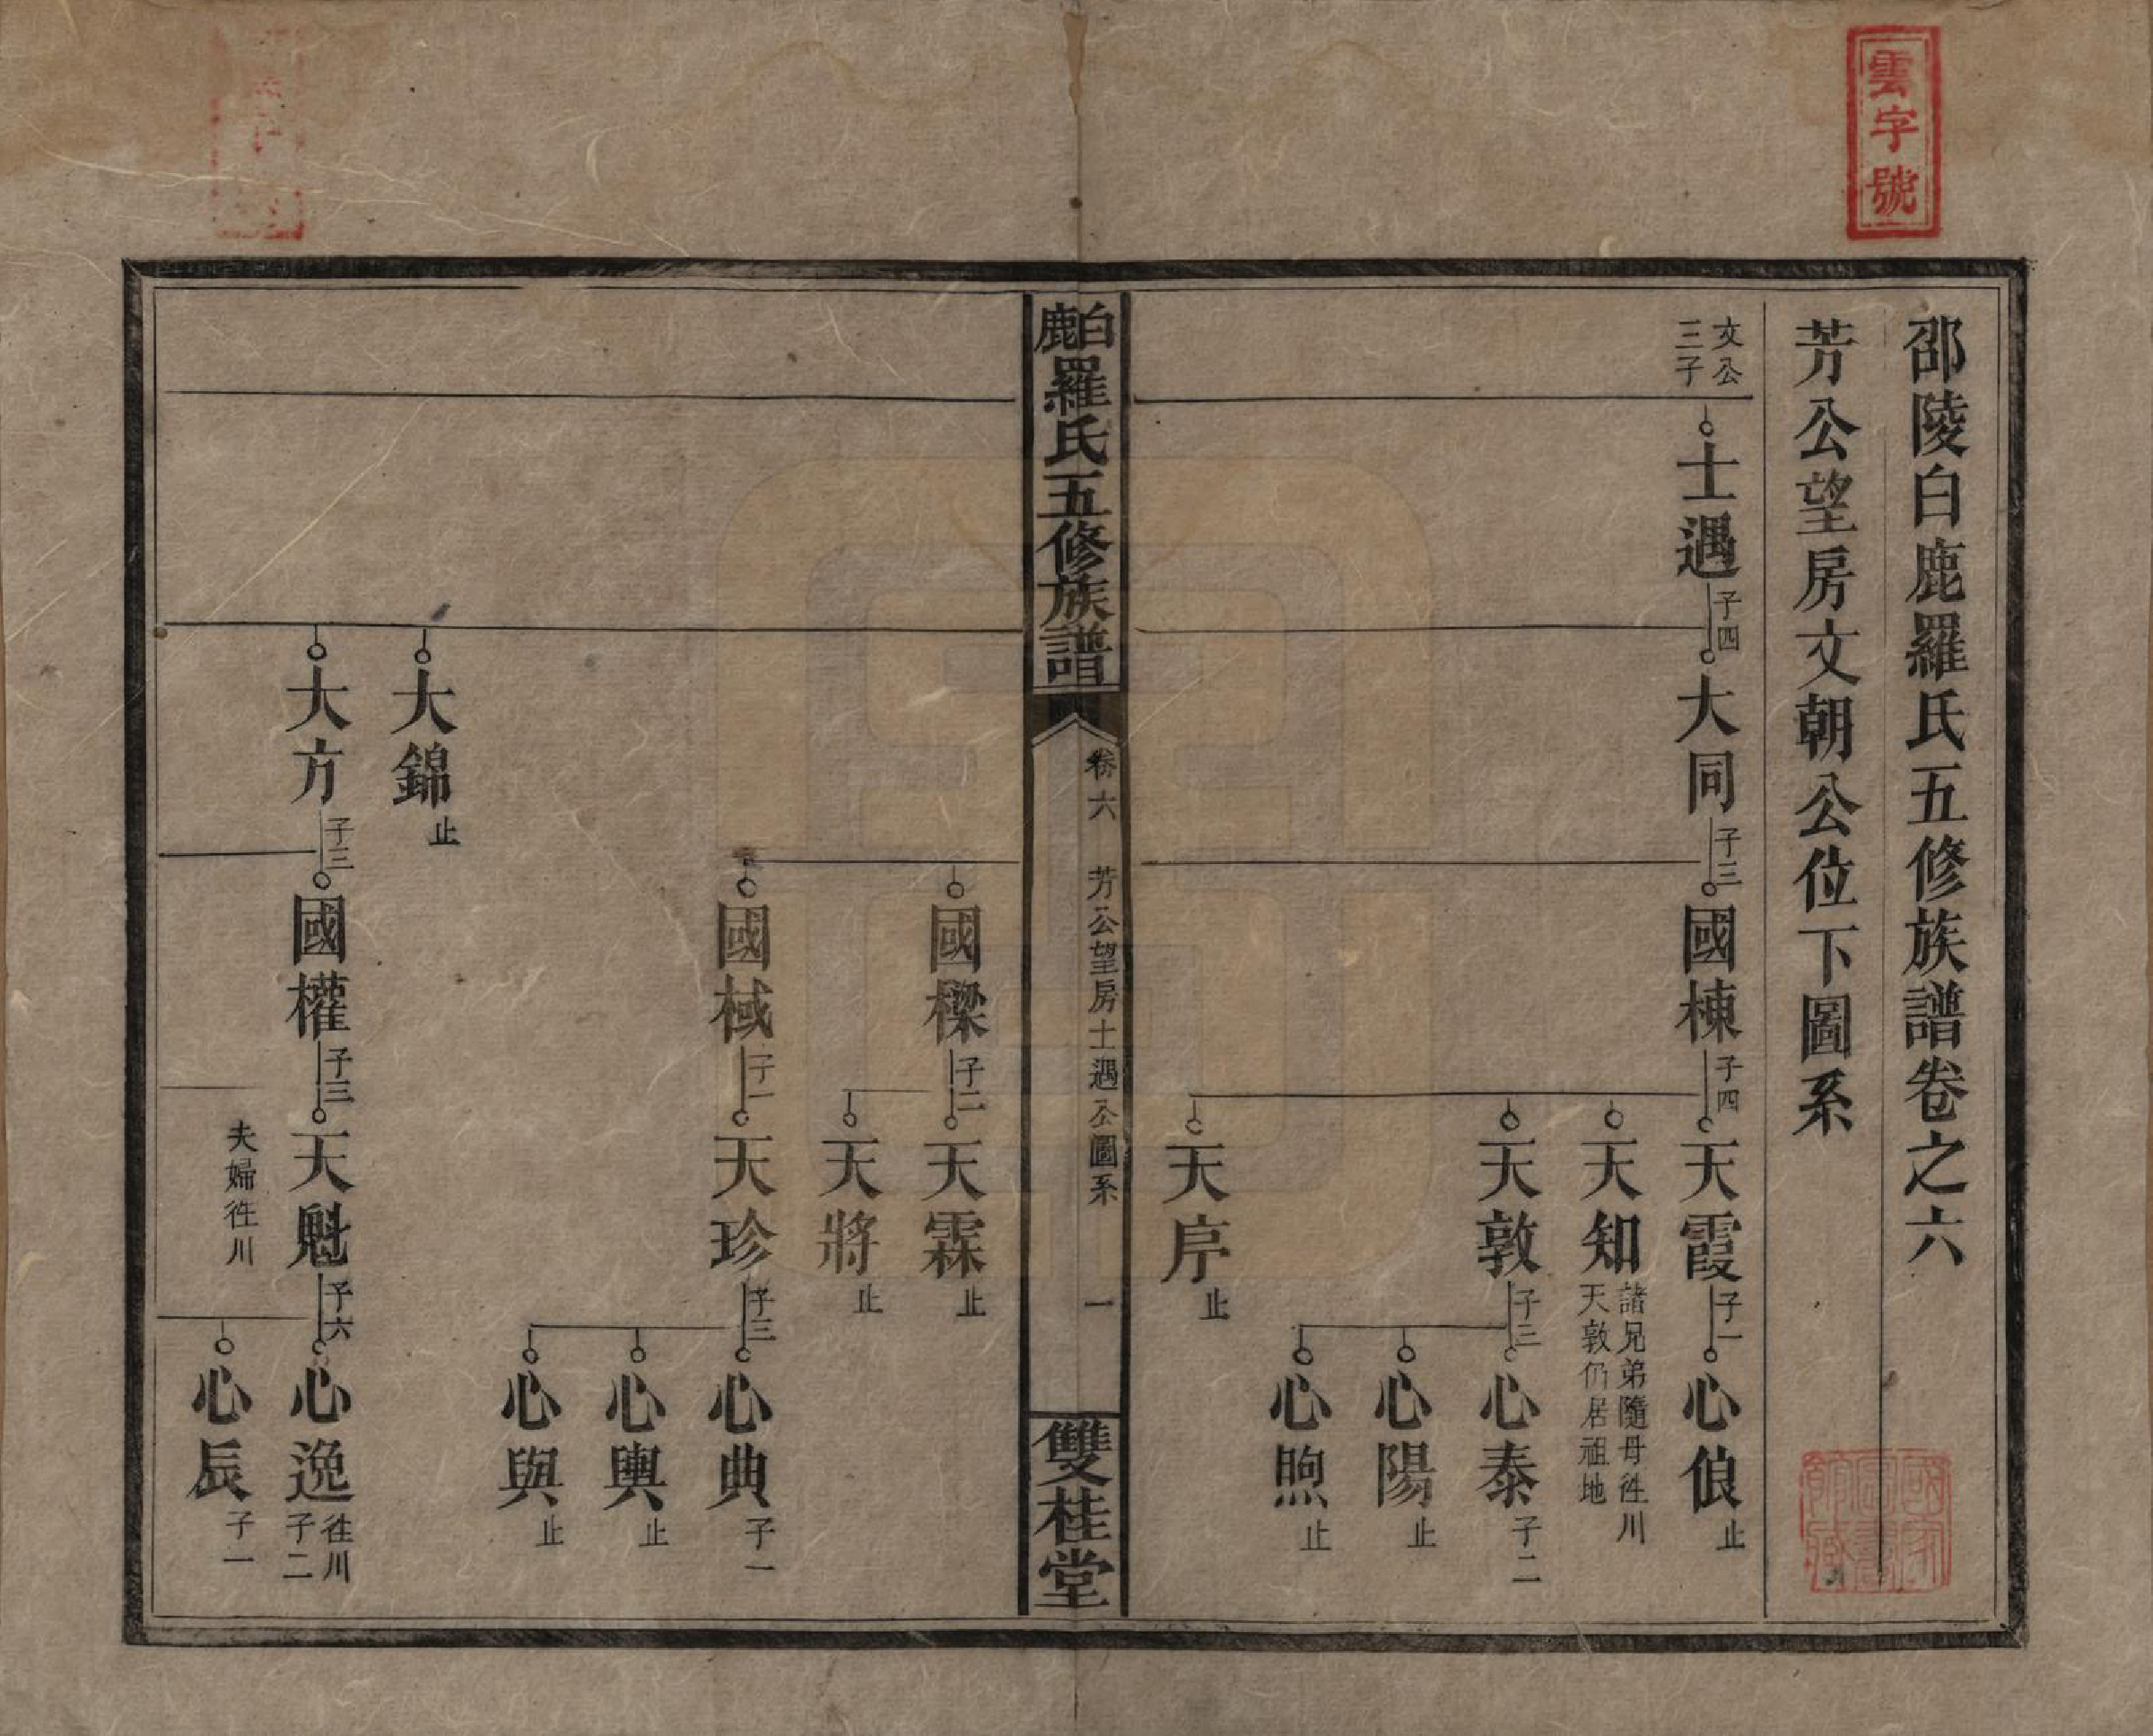 雲字號
邵陵白鹿羅氏五修族譜卷之六
芳公望房文朝公位下圖系
文公
三子
士遇
子四
大同
子三
國棟
子四
天霞
子一
心俍
止
天知
諸兄弟隨母徃川
天敦仍居祖地
天敦
子三
心泰
子二
心陽
止
心煦
止
天序
止
白鹿羅氏五修族譜
卷六
芳公望房士遇公圖系
一
雙桂堂
國樑
子二
天霖
止
天將
止
國棫
子一
天珍
子三
心典
子一
心輿
止
心與
止
大錦
止
大方
子三
國權
子三
天魁
子六
夫婦徃川
心逸
徃川
子二
心辰
子一